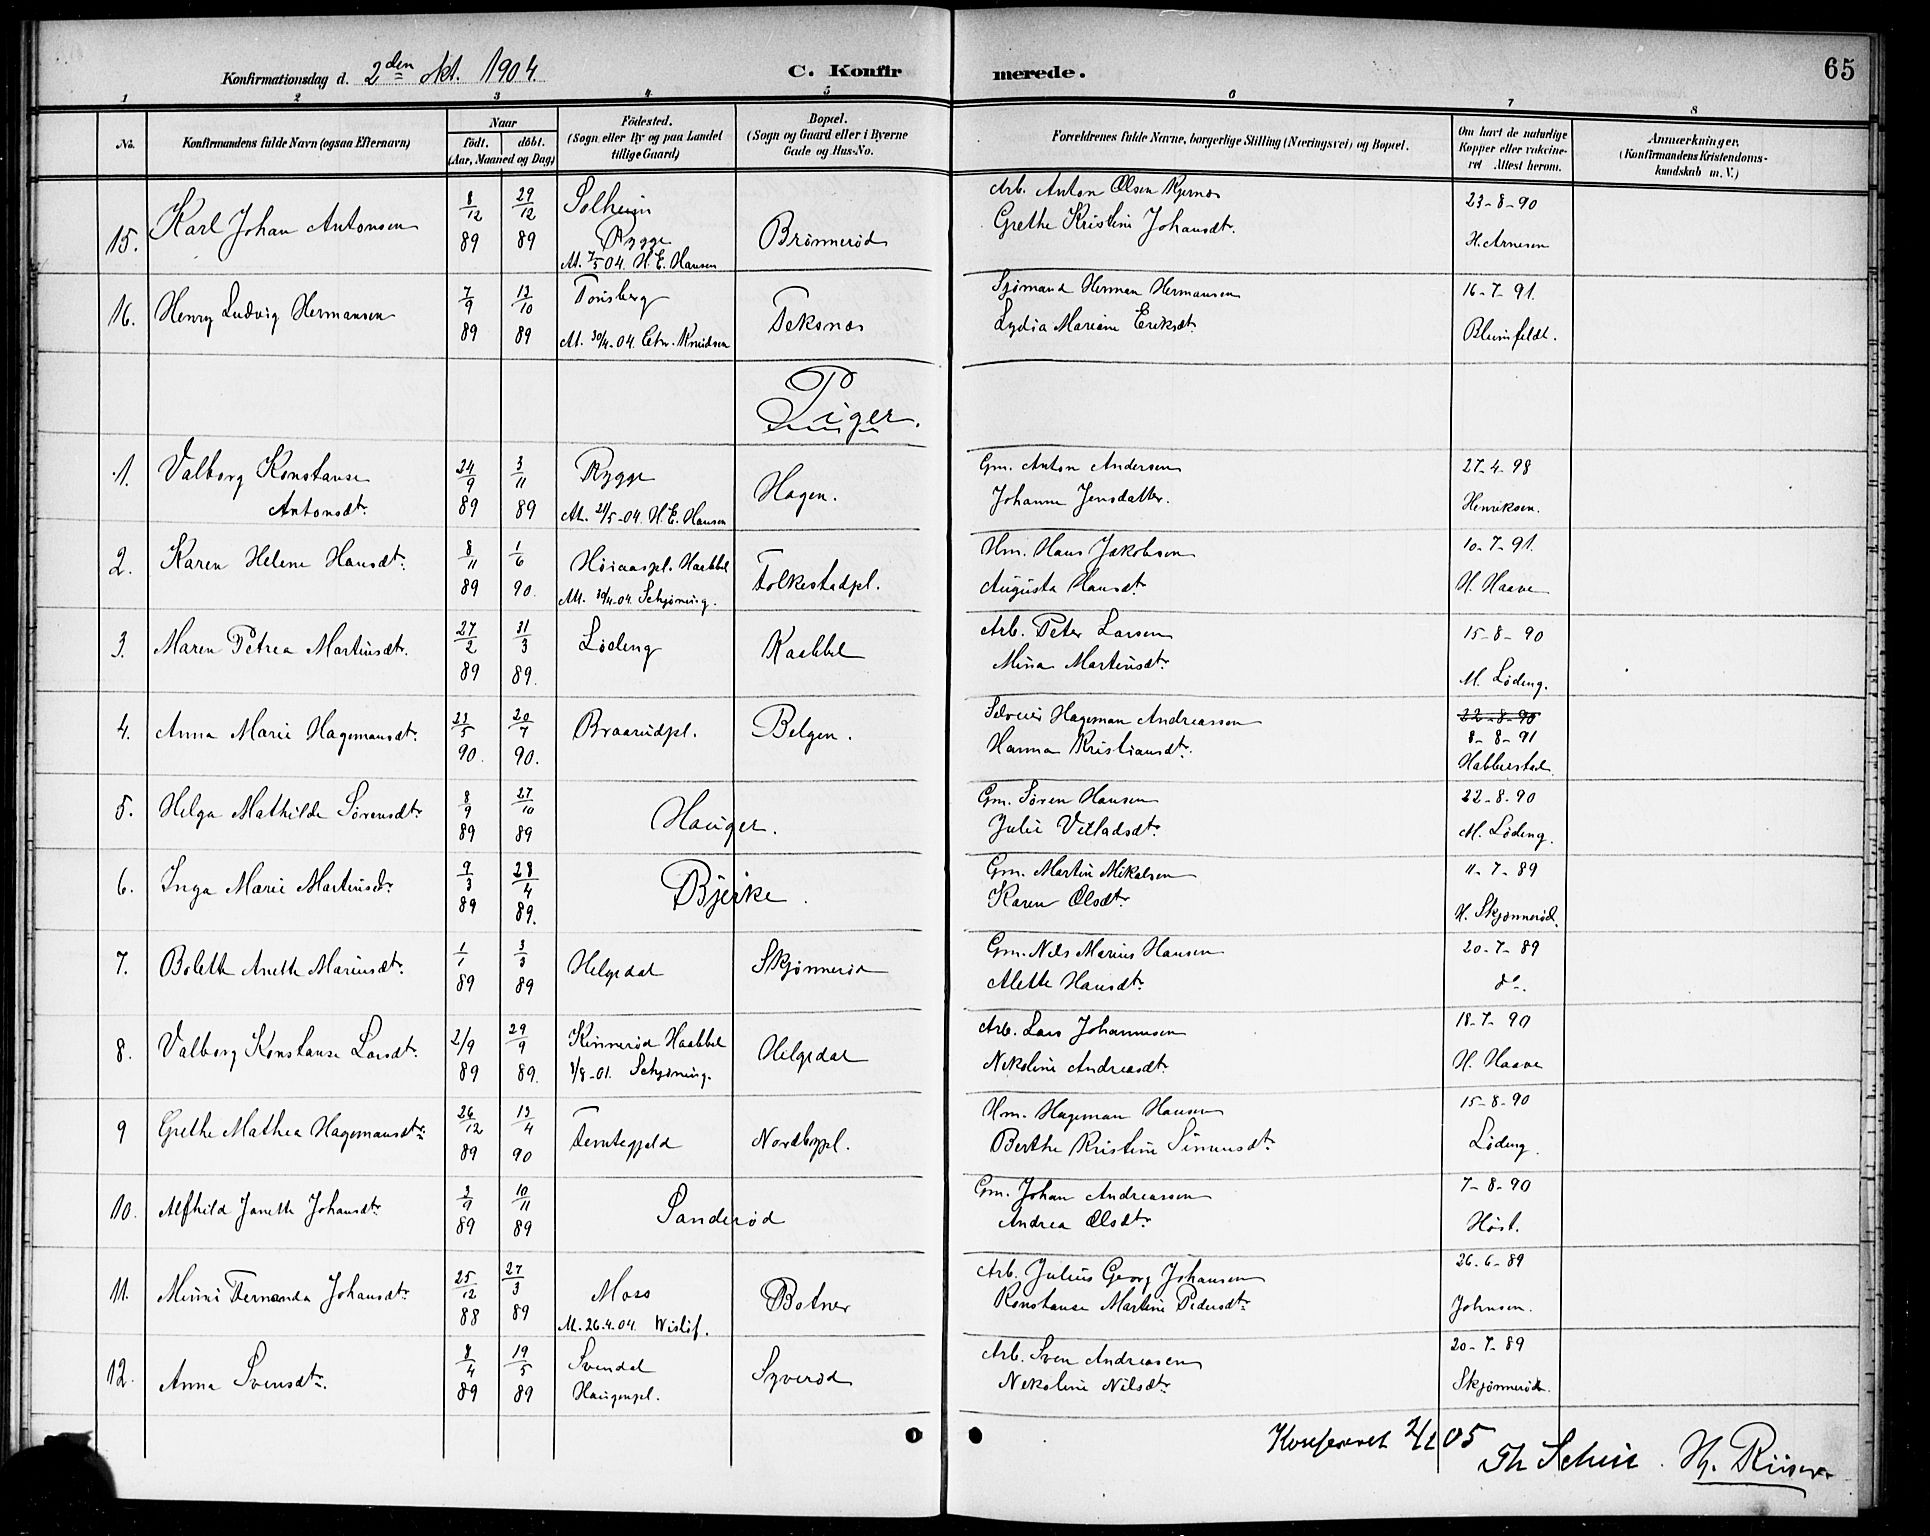 Konfirmationsdag d. 2den Okt. 1904.
C. Konfirmerede.
65
1 2 3 4 5 6 7 8
No.
Konfirmandens fulde Navn (ogsaa Efternavn)
Naar
födt. döbt.
(Aar, Maaned og Dag)
Födested.
(Sogn eller By og paa Landet
tillige Gaard)
Bopæl.
(Sogn og Gaard eller i Byerne
Gade og Hus-No.
Forældrenes fulde Navne, borgerlige Stilling (Næringsvei) og Bopæl.
Om havt de naturlige
Kopper eller vakcine-
ret Attest herom.
Anmærkninger.
(Konfirmandens Kristendoms-
kundskab m. V.)
15. Karl Johan Antonsen 8/12 89 29/12 89 Solheim
Rygge
At. 7/5 04. H. E. Hansen
Brönnerød
Arb. Anton Olsen Kjernes
Grethe Kristine Johansdt.
23-8-90
H. Arnesen
16. Henry Ludvig Hermansen 7/9 89 13/10 89 Tönsberg
At. 30/4-04. Chr. Knudsen
Teksnes
Sjömand Herman Hermansen
Lydia Marie Eriksdt.
16-7-91.
Blumfeldt.
Piger.
1. Valborg Konstanse
Antonsdt. 24/9 89 3/11 89 Rygge
At. 21/5-04. H. E. Hansen
Hagen.
Gm. Anton Andersen
Johanne Jensdatter.
27-4-98
Henriksen.
2. Karen Helene Hansdt. 8/11 89 1/6 90. Höiaaspl. Haabbel
At. 30/4-04. Schjöning.
Folkestadpl.
Hm. Hans Jakobsen
Augusta Hansdt.
10-7-91.
H. Haave
3. Maren Petrea Martinsdt. 27/2 89 31/3 89. Löding
Kaabbel
Arb. Peter Larsen
Mina Martinsdt.
15-8-90
M. Löding.
4. Anna Marie Hagemansdt. 23/5 90. 20/7 90. Braarudpl.
Belgen.
Selveier Hageman Andreassen
Hanna Kristiansdt.
22-8-90
8-8-91
Habberstad.
5. Helga Mathilde Sörensdt. 8/9 89 27/10 89 Hauger.
Gm. Sören Hansen
Julie Vetladsdt.
22-8-90
M. Löding.
6. Inga Marie Martinsdt. 9/3 89 28/4 89. Bjerke.
Gm. Martin Mikalsen
Karen Olsdt.
11-7-89
H. Skjönnerød.
7. Bolette Anette Mariusdt. 1/1 89 3/3 89 Helgedal
Skjønnerød
Gm. Nils Marius Hansen
Alette Hansdt.
20-7-89
do.
8. Valborg Konstanse Larsdt. 2/9 89 29/9 89. Kinnerød Haabbel
1/8-01. Schjöning.
Helgedal
Arb. Lars Johannesen
Nikoline Andreasdt.
18-7-90
H. Haave
9 Grethe Mathea Hagemansdt. 26/12 89 13/4 90 Femtegjeld
Nordbypl.
Hm. Hageman Hansen
Berthe Kristine Simensdt.
15-8-90
Löding.
10. Alfhild Janette Johansdt. 2/9 89 10/11 89 Sanderød
Gm. Johan Andreassen
Andrea Olsdt.
7-8-90
Höst.
11. Minni Fernanda Johansdt. 25/12 88 27/3 89 Moss
At. 26.4.04. Wislöf.
Botner
Arb. Julius Georg Johansen
Konstanse Martine Pedersdt.
26-6-89
Johnsen.
12. Anna Svensdt. 8/4 89 19/5 89 Svendal
Haugenpl.
Syverød
Arb. Sven Andreasen
Nekoline Nilsdt.
20-7-89
Skjönnerød.
Konfereret 2/1 05
Th Schie. Hj. Riiser